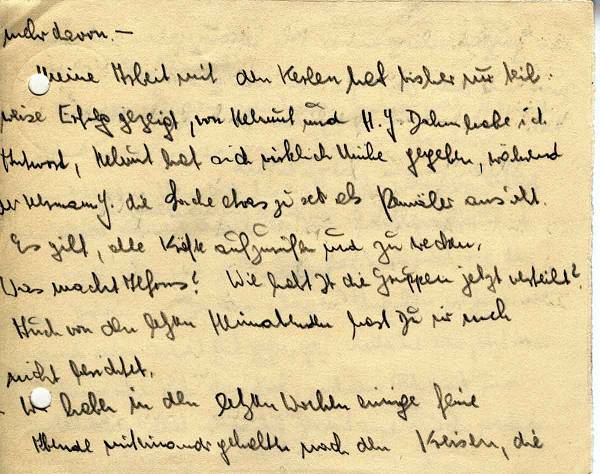 mehr davon. —
Meine Arbeit mit den Kerlen hat bisher nur teil-
weise Erfolg gezeigt, von Helmut und H. J. Dahm habe ich
Antwort, Helmut hat sich wirklich Mühe gegeben, während
der Hermann J. die Sache etwas zu sehr als ansieht.
Es gilt, alle Kräfte aufzurufen und zu wecken.
Was macht Alfons? Wie habt Ihr die Gruppen jetzt verteilt?
Auch von den letzten Heimabenden hast Du mir noch
nicht berichtet.
Wir haben in den letzten Wochen einige feine
Abende miteinander gehalten nach den Kreisen, die